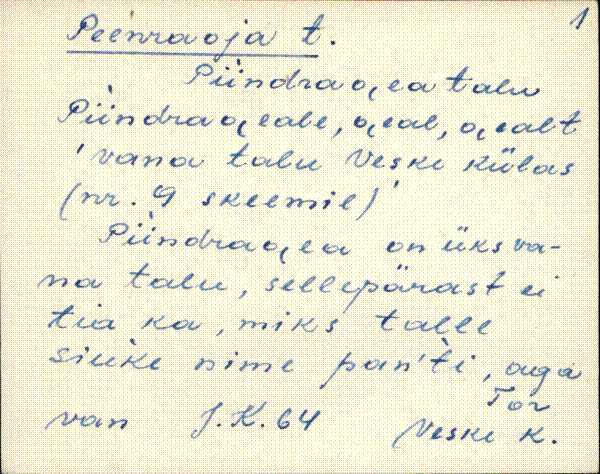 1
Peenraoja t.
Pìindrao̗ea talu
Pìindrao̗eale, o̗eal, o̗ealt
'vana talu Veske külas
(nr. 9 skeemil)'
Pìindrao̗ea on üks va-
na talu, sellepärast ei
tia ka, miks talle
siuke nime pan'ti, aga
van J.K. 64 Tor
Veske k.